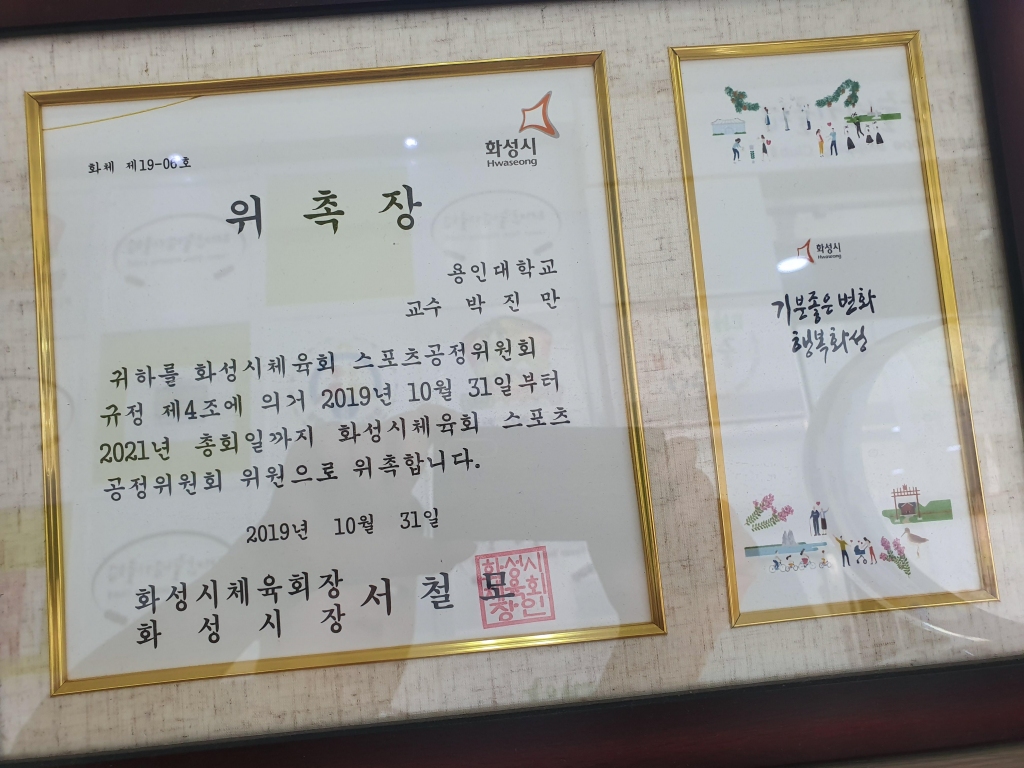 화체 제19-06호
화성시
Hwaseong
위 촉 장
용인대학교
교수 박 진 만
귀하를 화성시체육회 스포츠공정위원회
규정 제4조에 의거 2019년 10월 31일부터
2021년 총회일까지 화성시체육회 스포츠
공정위원회 위원으로 위촉합니다.
2019년 10월 31일
화성시체육회장
화 성 시 장
서 철 모
화성시
체육회
장인
화성시
Hwaseong
기분좋은변화
행복화성